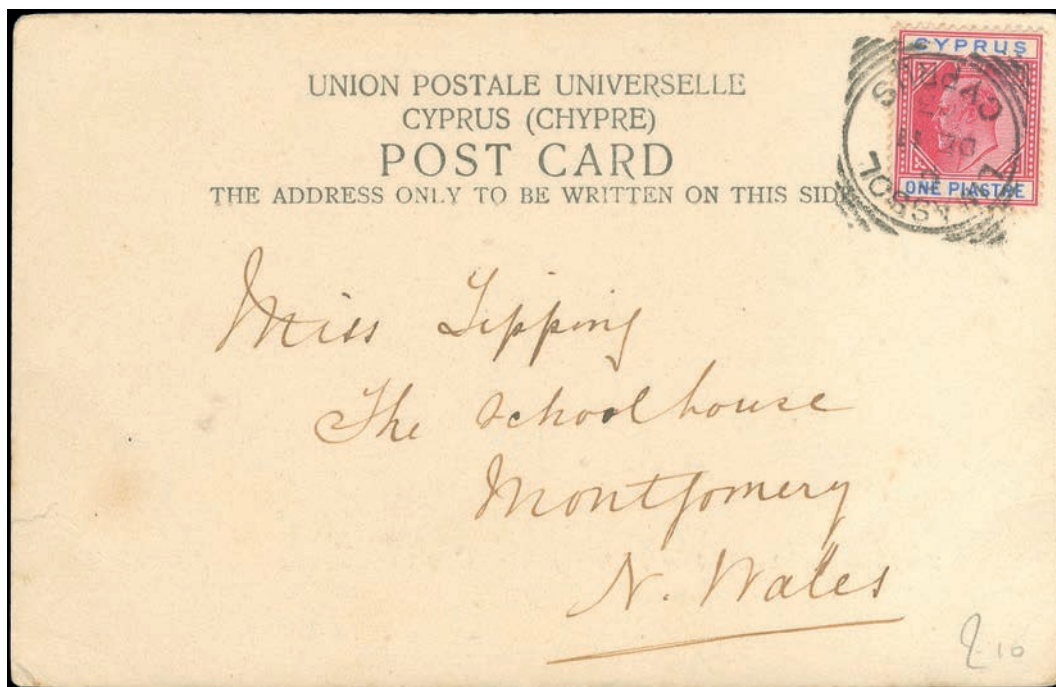 UNION POSTALE UNIVERSELLE
CYPRUS (CHYPRE)
POST CARD
THE ADDRESS ONLY TO BE WRITTEN ON THIS SIDE
CYPRUS
ONE PIASTRE
CYPRUS
DE 11
LIMASSOL
Miss Tipping
The Schoolhouse
Montgomery
N. Wales
10